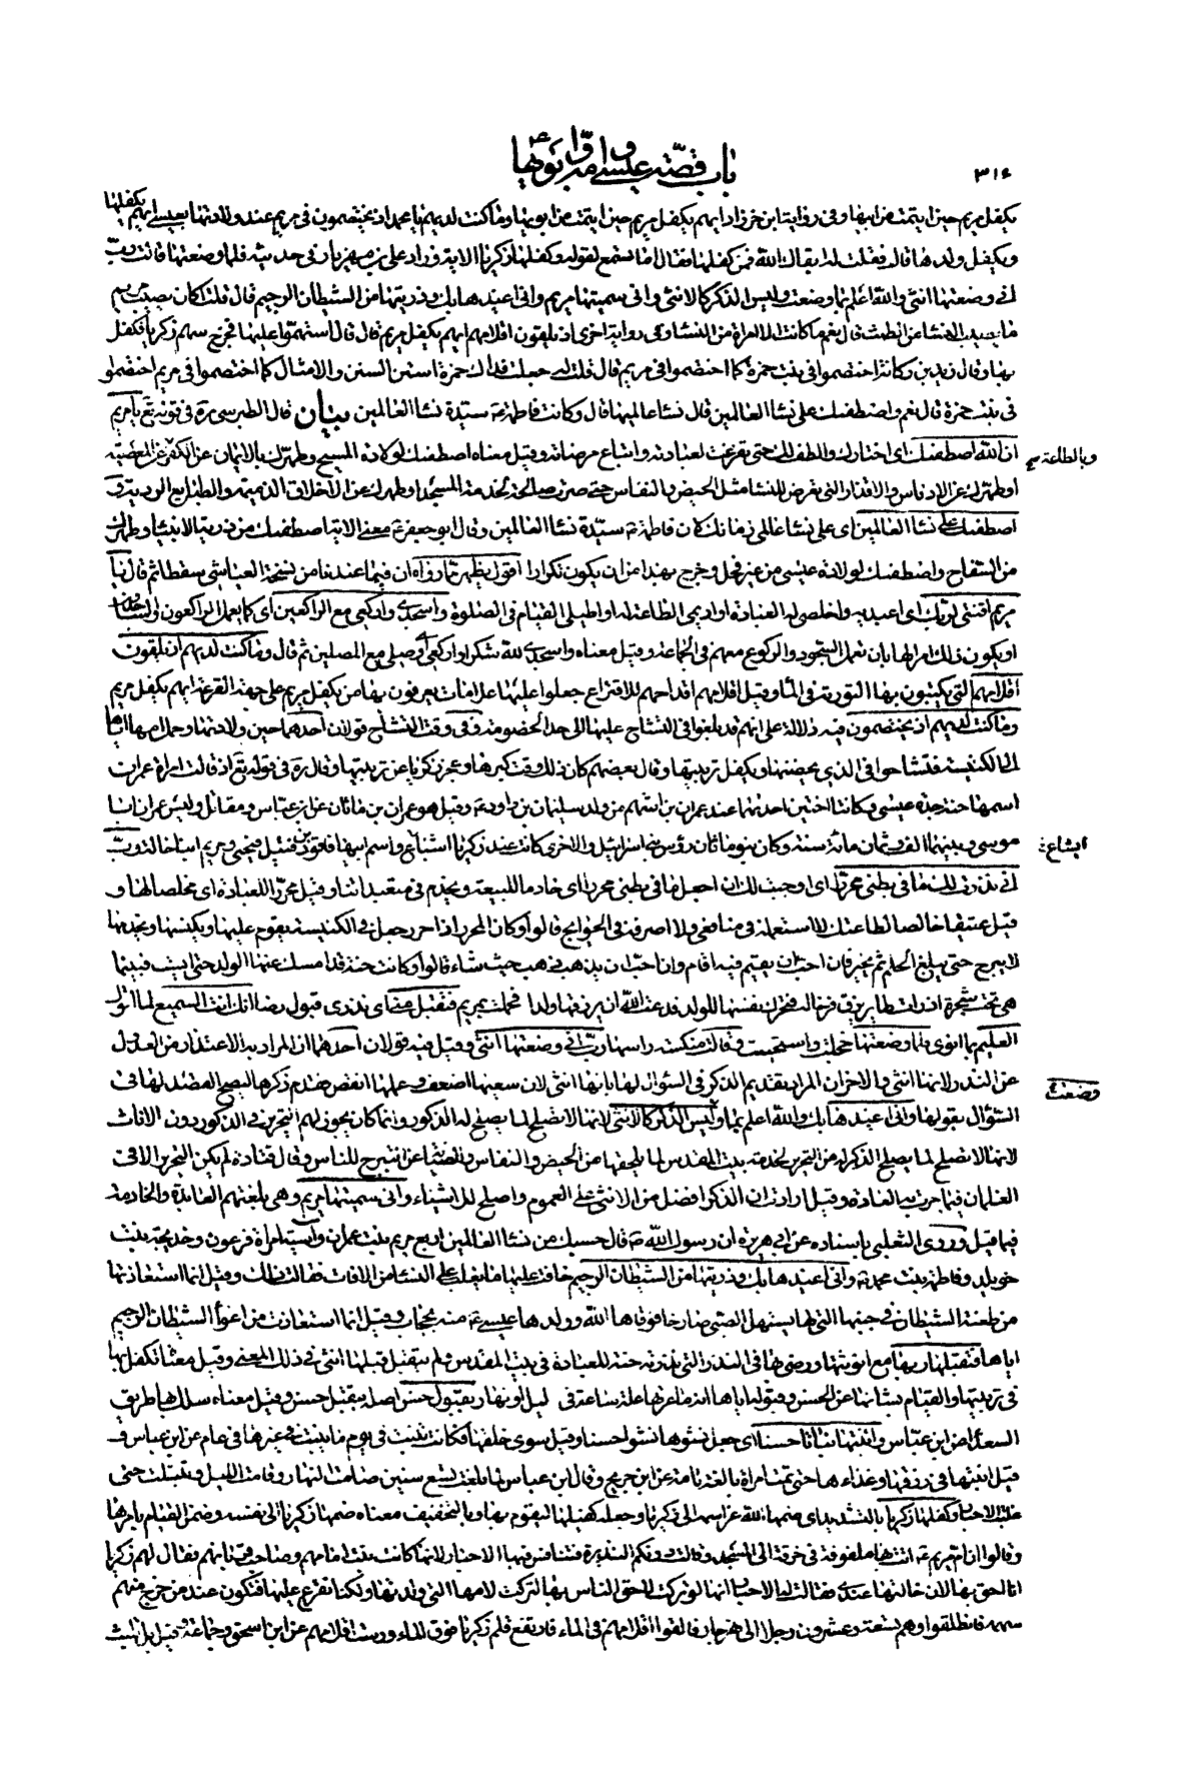 باب قصّة عيسى و امه و ابويها
٣١٤
يكفل مريم حين ايتمت من ابيها وفى رواية ابن خرزاد ايهم يكفل مريم حين ايتمت من ابويها وما كنت لديهم يا محمد اذ يختصمون فى مريم عند ولادتها بعيسى ايهم يكفلها
ويكفل ولدها قال فقلت له ابقاك الله فمن كفلها فقال اما تسمع لقوله وكفلها زكريا الاية وزاد على بن مهزيار فى حديثه فلما وضعتها قالت رب
انى وضعتها انثى والله اعلم بما وضعت وليس الذكر كالانثى وانى سميتها مريم وانى اعيذها بك وذريتها من الشيطان الرجيم قال قلت اكان يصيب مريم
ما يصيب النساء من الطمث قال نعم ما كانت الا امراة من النساء وفى رواية اخرى اذ يلقون اقلامهم ايهم يكفل مريم قال قال استهموا عليها فخرج سهم زكريا فكفل
بها وقال زيد بن ركانة اختصموا فى بنت حمزة كما اختصموا فى مريم قال قلت له جعلت فداك حمزة استن السنن والامثال كما اختصموا فى مريم اختصموا
فى بنت حمزة قال نعم واصطفيك على نساء العالمين قال نساء عالميها قال وكانت فاطمة ع سيدة نساء العالمين بيان قال الطبرسى ره فى قوله تع يا مريم
ان الله اصطفيك اى اختارك والطف لك حتى تفرغت لعبادته واتباع مرضاته وقيل معناه اصطفيك لولادة المسيح وطهرك بالايمان عن الكفر وعن المعصية
وبالطاعة
او طهرك عن الادناس والاقذار التى تعرض للنساء مثل الحيض والنفاس حتى صرت صالحة لخدمة المسجد او طهرك عن الاخلاق الذميمة والطبايع الردية و
اصطفيك على نساء العالمين اى على نساء عالمى زمانك لان فاطمة ع سيدة نساء العالمين وقال ابو جعفر ع معنى الاية اصطفيك من ذرية الانبياء وطهرك
من السفاح واصطفيك لولادة عيسى من غير فحل وخرج بهذا من ان يكون تكرارا اقول يظهر مما رواه ان فيما عندنا من نسخة العياشى سقطا ثم قال يا
مريم اقنتى لربك اى اعبديه واخلصى له العبادة او اديمى الطاعة له او اطيلى القيام فى الصلوة واسجدى واركعى مع الراكعين اى كما يعمل الراكعون والساجدون
او يكون ذلك امرا لها بان تعمل السجود والركوع معهم فى الجماعة وقيل معناه واسجدى لله شكرا واركعى اى وصلى مع المصلين ثم قال وما كنت لديهم اذ يلقون
اقلامهم التى يكتبون بها التورية فى الماء وقيل اقلامهم اقداحهم للاقتراع جعلوا عليها علامات يعرفون بها من يكفل مريم على جهة القرعة ايهم يكفل مريم
وما كنت لديهم اذ يختصمون فيه دلالة على انهم قد بلغوا فى التشاح عليها الى حد الخصومة وفى وقت التشاح قولان احدهما حين ولادتها وحمل امها اياها
الى الكنيسة فتشاحوا فى الذى يحضنها ويكفل تربيتها وقال بعضهم كان ذلك وقت كبرها وعجز زكريا عن تربيتها وقال ره فى قوله تع اذ قالت امراة عمران
اسمها حنة جدة عيسى وكانتا اختين احدتهما عند عمران بن اشهم من ولد سليمان بن داود ع وقيل هو عمران بن ماثان عن ابن عباس ومقاتل وليس عمران ابا
موسى وبينهما الف وثمان مائة سنة وكان بنو ماثان رؤس بنى اسرائيل والاخرى كانت عند زكريا اشياع واسم ابيها فاقود بن قتيل فيحيى ومريم ابنا خالة رب
ايشاع
انى نذرت لك ما فى بطنى محررا اى اوجبت لك ان اجعل ما فى بطنى محررا اى خادما للبيعة ويخدم فى متعبداتنا وقيل محررا للعبادة اى مخلصا لها و
قيل عتيقا خالصا لطاعتك لا استعمله فى منافعى ولا اصرفه فى الحوايج قالوا وكان المحرر اذا حرر جعل فى الكنيسة يقوم عليها ويكنسها ويخدمها
لا يبرح حتى يبلغ الحلم ثم يخير فان احب ان يقيم فيه اقام وان احب ان يذهب ذهب حيث شاء قالوا وكانت حنة قد امسك عنها الولد حتى ايست فبينما
هى تحت شجرة اذ رات طايرا يزق فرخا له فتحركت نفسها للولد فدعت الله ان يرزقها ولدا فحملت بمريم فتقبل منى اى نذرى قبول رضا انك انت السميع لما اقول
العليم بما انوى فلما وضعتها خجلت واستحيت وقالت منكسة راسها رب انى وضعتها انثى وقيل فيه قولان احدهما ان المراد به الاعتذار من العدول
عن النذر لانها انثى والاخر ان المراد تقديم الذكر فى السؤال لها بانها انثى لان سعيها اضعف وعملها انقص فقدم ذكرها ليصح القصد لها فى
وضعت
السؤال بقولها وانى اعيذها بك والله اعلم بما وليس الذكر كالانثى لانها لا تصلح لما يصلح له الذكور وانما كان يجوز لهم التحرير فى الذكور دون الاناث
لانها لا تصلح لما يصلح الذكر له من التحرير لخدمة بيت المقدس لما يلحقها من الحيض والنفاس والصيانة عن التبرج للناس وقال قتادة لم يكن التحرير الا فى
الغلمان فيما جرت به العادة وقيل ارادت ان الذكر افضل من الانثى على العموم واصلح للاشياء وانى سميتها مريم وهى بلغتهم العابدة والخادمة
فيما قيل وروى الثعلبى باسناده عن ابى هريرة ان رسول الله ص قال حسبك من نساء العالمين اربع مريم بنت عمران وآسية امراة فرعون وخديجة بنت
خويلد وفاطمة بنت محمد ص وانى اعيذها بك وذريتها من الشيطان الرجيم خافت عليها ما يغلب على النساء من الافات فقالت ذلك وقيل انما استعاذتها
من طعنة الشيطان فى جنبها التى لها يستهل الصبى صارخا فوقاها الله وولدها عيسى ع منه بحجاب وقيل انما استعاذت من اغواء الشيطان الرجيم
اياها فتقبلها ربها مع انوثتها ورضى بها فى النذر التى نذرته حنة للعبادة فى بيت المقدس ولم يتقبل قبلها انثى فى ذلك المعنى وقيل معناه تكفل بها
فى تربيتها والقيام بشانها عن الحسن وقبوله اياها انه ما عرتها علة ساعة فى ليل او نهار بقبول حسن اصله بتقبل حسن وقيل معناه سلك بها طريق
السعداء عن ابن عباس وانبتها نباتا حسنا اى جعل نشوها نشوا حسنا وقيل سوى خلقها فكانت تنبت فى يوم ما ينبت غيرها فى عام عن ابن عباس و
قيل انبتها فى رزقها وغذاءها حتى تمت امراة بالغة تامة عن ابن جريج وقال ابن عباس لما بلغت تسع سنين صامت النهار وقامت الليل وتبتلت حتى
غلبت الاحبار وكفلها زكريا بالتشديد اى ضمها الله عز اسمه الى زكريا وجعله كفيلها ليقوم بها وبالتخفيف معناه ضمها زكريا الى نفسه وضمن القيام بامرها
وقالوا ان ام مريم ع اتت بها ملفوفة فى خرقة الى المسجد وقالت دونكم النذيرة فتنافس فيها الاحبار لانها كانت بنت امامهم وصاحب قربانهم فقال لهم زكريا
انا احق بها لان خالتها عندى فقالت له الاحبار انها لو تركت لاحق الناس بها لتركت لامها التى ولدتها ولكنا نقترع عليها فتكون عند من خرج سهمه
سهمه فانطلقوا وهم تسعة وعشرون رجلا الى نهر جار فالقوا اقلامهم فى الماء فارتفع قلم زكريا فوق الماء ورست اقلامهم عن ابن اسحق وجماعة وقيل بل ثبت